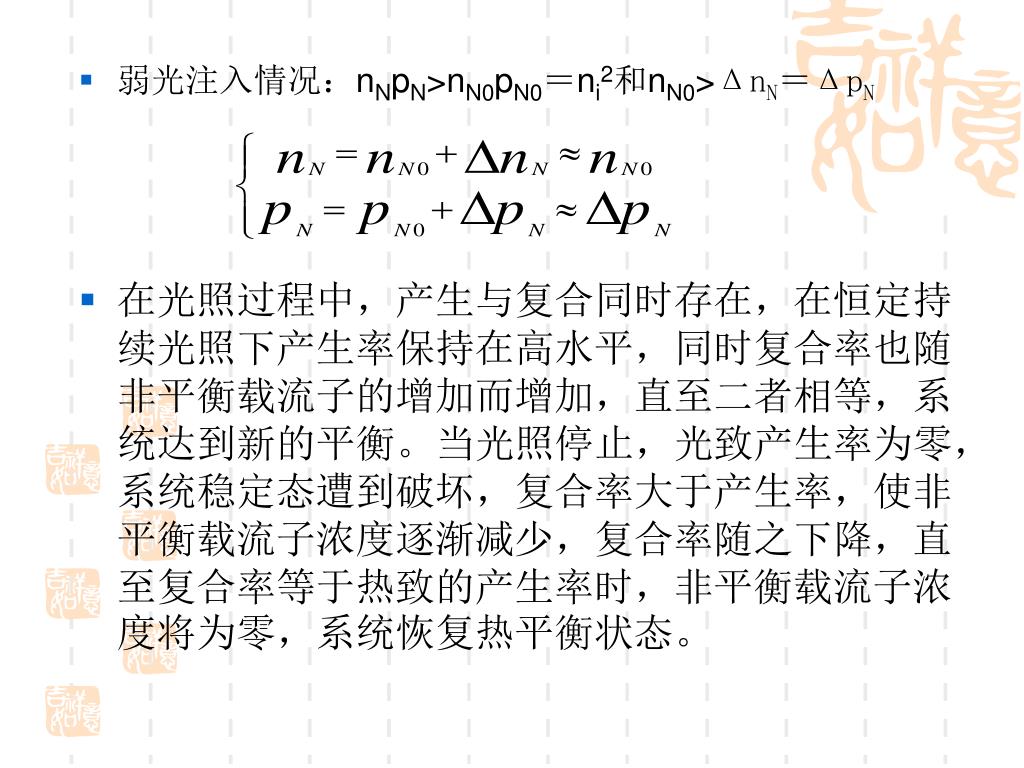 弱光注入情况：nNpN>nN0pN0＝ni2和nN0>ΔnN＝ΔpN
nN = nN0 + ΔnN ≈ nN0
pN = pN0 + ΔpN ≈ ΔpN
在光照过程中，产生与复合同时存在，在恒定持
续光照下产生率保持在高水平，同时复合率也随
非平衡载流子的增加而增加，直至二者相等，系
统达到新的平衡。当光照停止，光致产生率为零，
系统稳定态遭到破坏，复合率大于产生率，使非
平衡载流子浓度逐渐减少，复合率随之下降，直
至复合率等于热致的产生率时，非平衡载流子浓
度将为零，系统恢复热平衡状态。
吉祥
如意
吉祥
如意
吉祥
如意
吉祥
如意